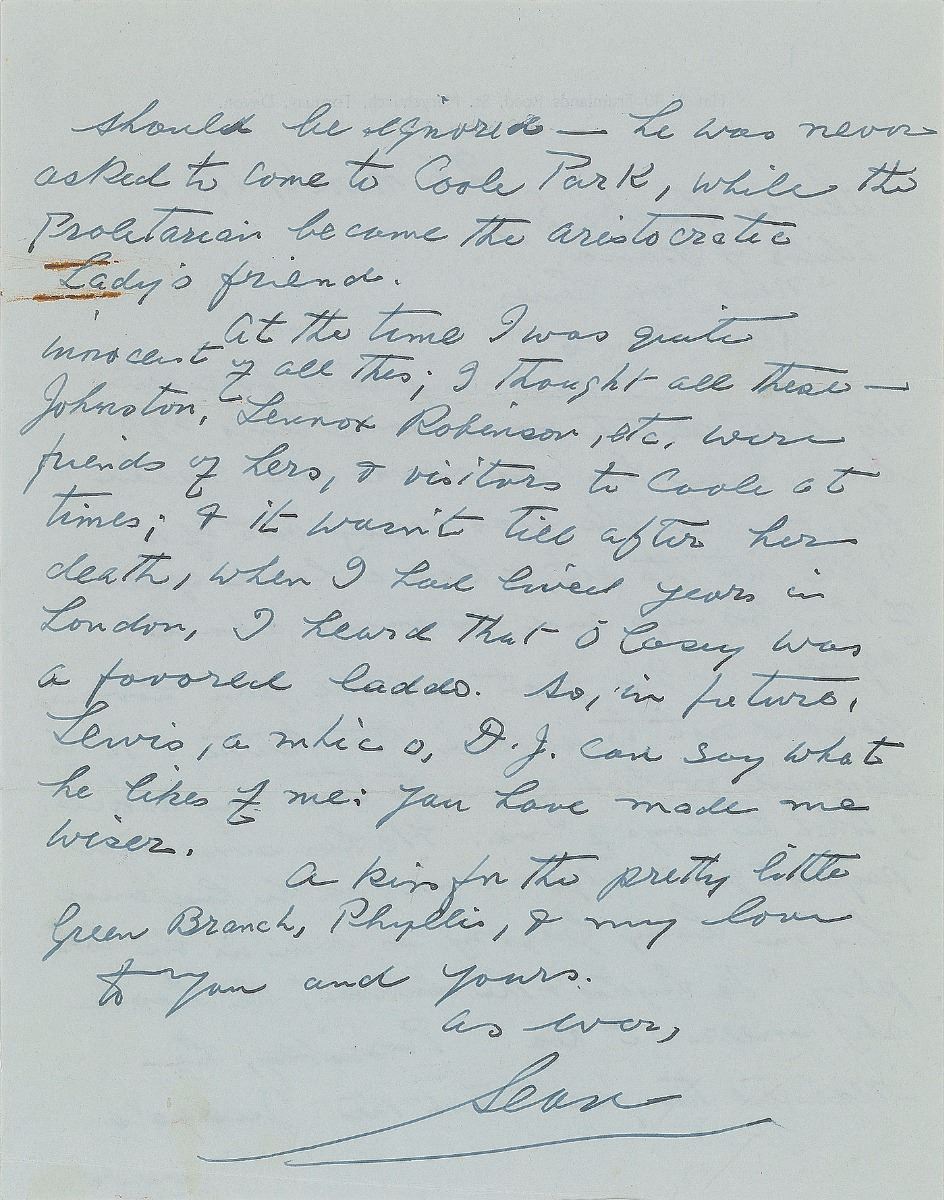 should be ignored — he was never
asked to come to Coole Park, while the
Proletarian became the aristocratic
Lady's friend.
At the time I was quite
innocent of all this; I thought all these —
Johnston, Lennox Robinson, etc, were
friends of hers, & visitors to Coole at
times; & it wasn't till after her
death, when I had lived years in
London, I heard that O Casey was
a favored laddo. So, in future,
Lewis, a mhic o, D.J. can say what
he likes of me: you have made me
wiser.
A kiss for the pretty little
Green Branch, Phyllis, & my love
to you and yours.
As ever,
Sean